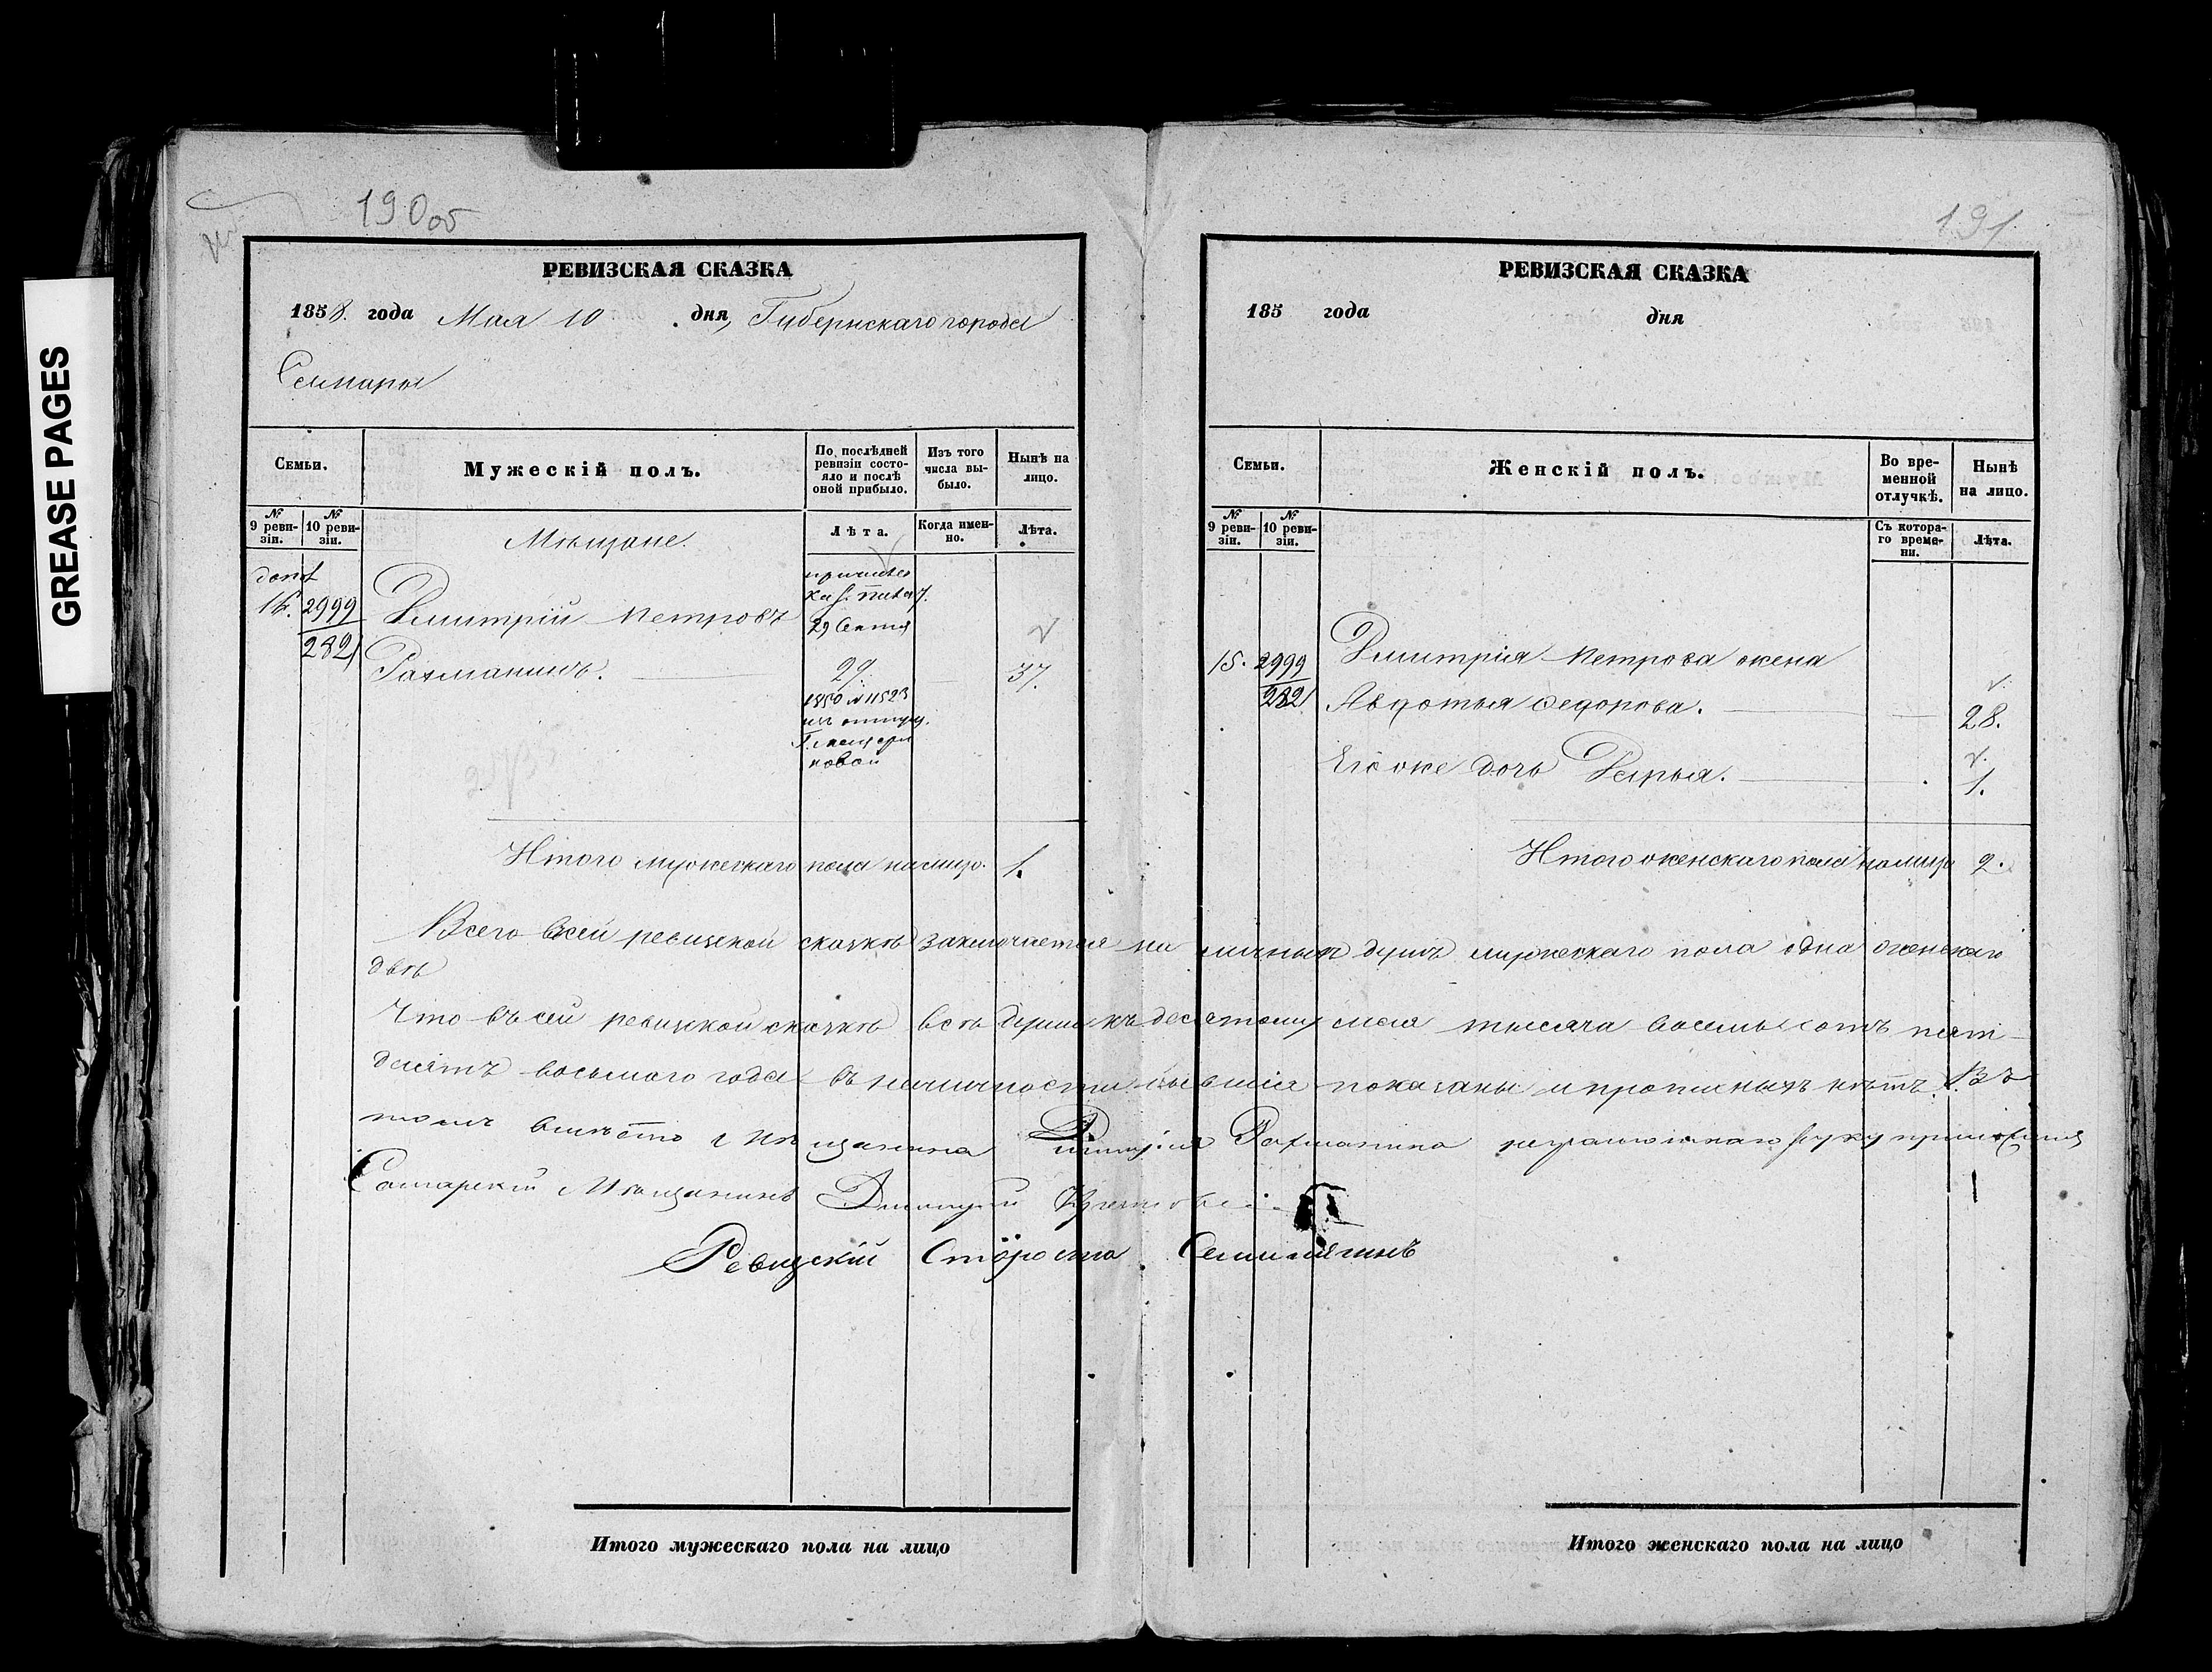 GREASE PAGES
190об
РЕВИЗСКАЯ СКАЗКА
1858. года Мая 10 дня, Губернскаго города
Самары
Семьи.
Мужескій полъ.
По послѣдней ревизіи состояло и послѣ оной прибыло.
Изъ того числа выбыло.
Нынѣ на лицо.
№ 9 ревизіи.
№ 10 ревизіи.
Мѣщане.
Лѣта.
Когда именно.
Лѣта.
2999
Дмитрій Петровъ
282
Рахманинъ.
29
37.
1850 № 11523
Итого мужескаго пола налицо. 1.
191
РЕВИЗСКАЯ СКАЗКА
185 года дня
Семьи.
Женскій полъ.
Во временной отлучкѣ.
Нынѣ на лицо.
№ 9 ревизіи.
№ 10 ревизіи.
Съ котораго времени.
Лѣта.
15. 2999
Дмитрія Петрова жена
282
Авдотья Федорова. 28.
Его же дочь Дарья. 1.
Итого женскаго пола налицо 2.
Всего въ сей ревизской сказкѣ заключается на личныхъ душъ мужескаго пола одна женскаго
двѣ
Что въ сей ревизской сказкѣ всѣ души къ десятому мая тысяча восемьсотъ пять-
десятъ восьмаго года въ наличности бывшія показаны и прописныхъ нѣтъ. Въ
томъ вмѣсто мѣщанина Дмитрія Рахманина неграмотнаго руку приложилъ
Самарскій Мѣщанинъ Дмитрій
Ревизскій Староста
Итого мужескаго пола на лицо
Итого женскаго пола на лицо